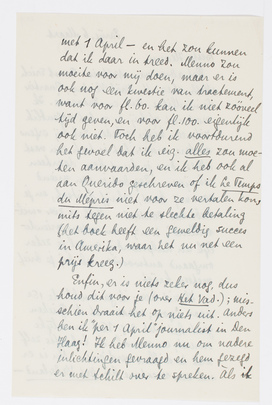 met 1 April – en het zou kunnen
dat ik daar in treed. Menno zou
moeite voor mij doen, maar er is
ook nog een kwestie van tractement,
want voor fl. 60. kan ik niet zóóveel
tijd geven, en voor fl. 100. eigenlijk
ook niet. Toch heb ik voortdurend
het gevoel dat ik eig. alles zou moe-
ten aanvaarden, en ik heb ook al
aan Querido geschreven of ik le Temps
du Mépris niet voor ze vertalen kon,
mits tegen niet te slechte betaling
(het boek heeft een geweldig succes
in Amerika, waar het nu net een
prijs kreeg.)
Enfin, er is niets zeker nog, dus
houd dit voor je (over Het Vad.); mis-
schien draait het op niets uit. Anders
ben ik "per 1 April" journalist in Den
Haag! Ik heb Menno nu om nadere
inlichtingen gevraagd en hem gezegd
er met Schilt over te spreken. Als ik